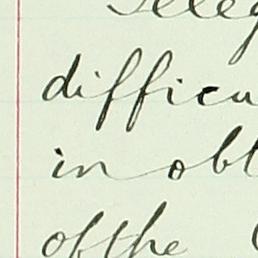 Teleg
difficu
in obt
of the